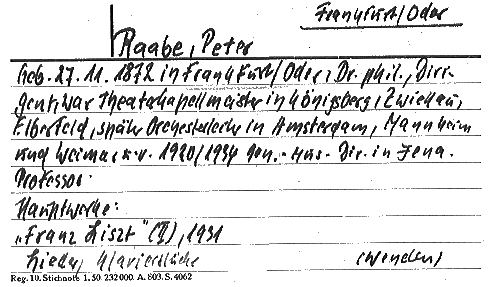 Frankfurt/Oder
Raabe, Peter
Geb. 27. 11. 1872 in Frankfurt/Oder, Dr. phil., Diri-
gent, war Theaterkapellmeister in Königsberg, Zwickau,
Elberfeld, später Orchesterleiter in Amsterdam, Mannheim
und Weimar u. v. 1920/1934 Gen.-Mus.-Dir. in Jena.
Professor.
Hauptwerke:
„Franz Liszt" (II), 1931
Lieder, Klavierstücke (wenden)
Reg. 10. Stichnote 1. 50. 232000. A. 803. S. 4062